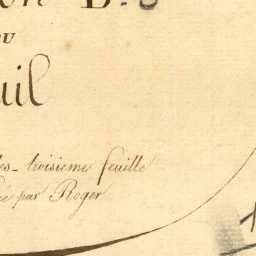 on B.
OU
uil
les- troisieme feuille
ée par Roger
1